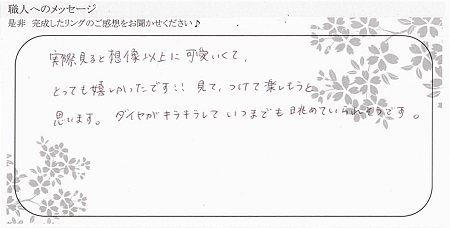 職人へのメッセージ
是非 完成したリングのご感想をお聞かせください♪
実際見ると想像以上に可愛いくて、
とっても嬉しかったです!! 見て、つけて楽しもうと
思います。 ダイヤがキラキラして いつまでも眺めていられそうです。